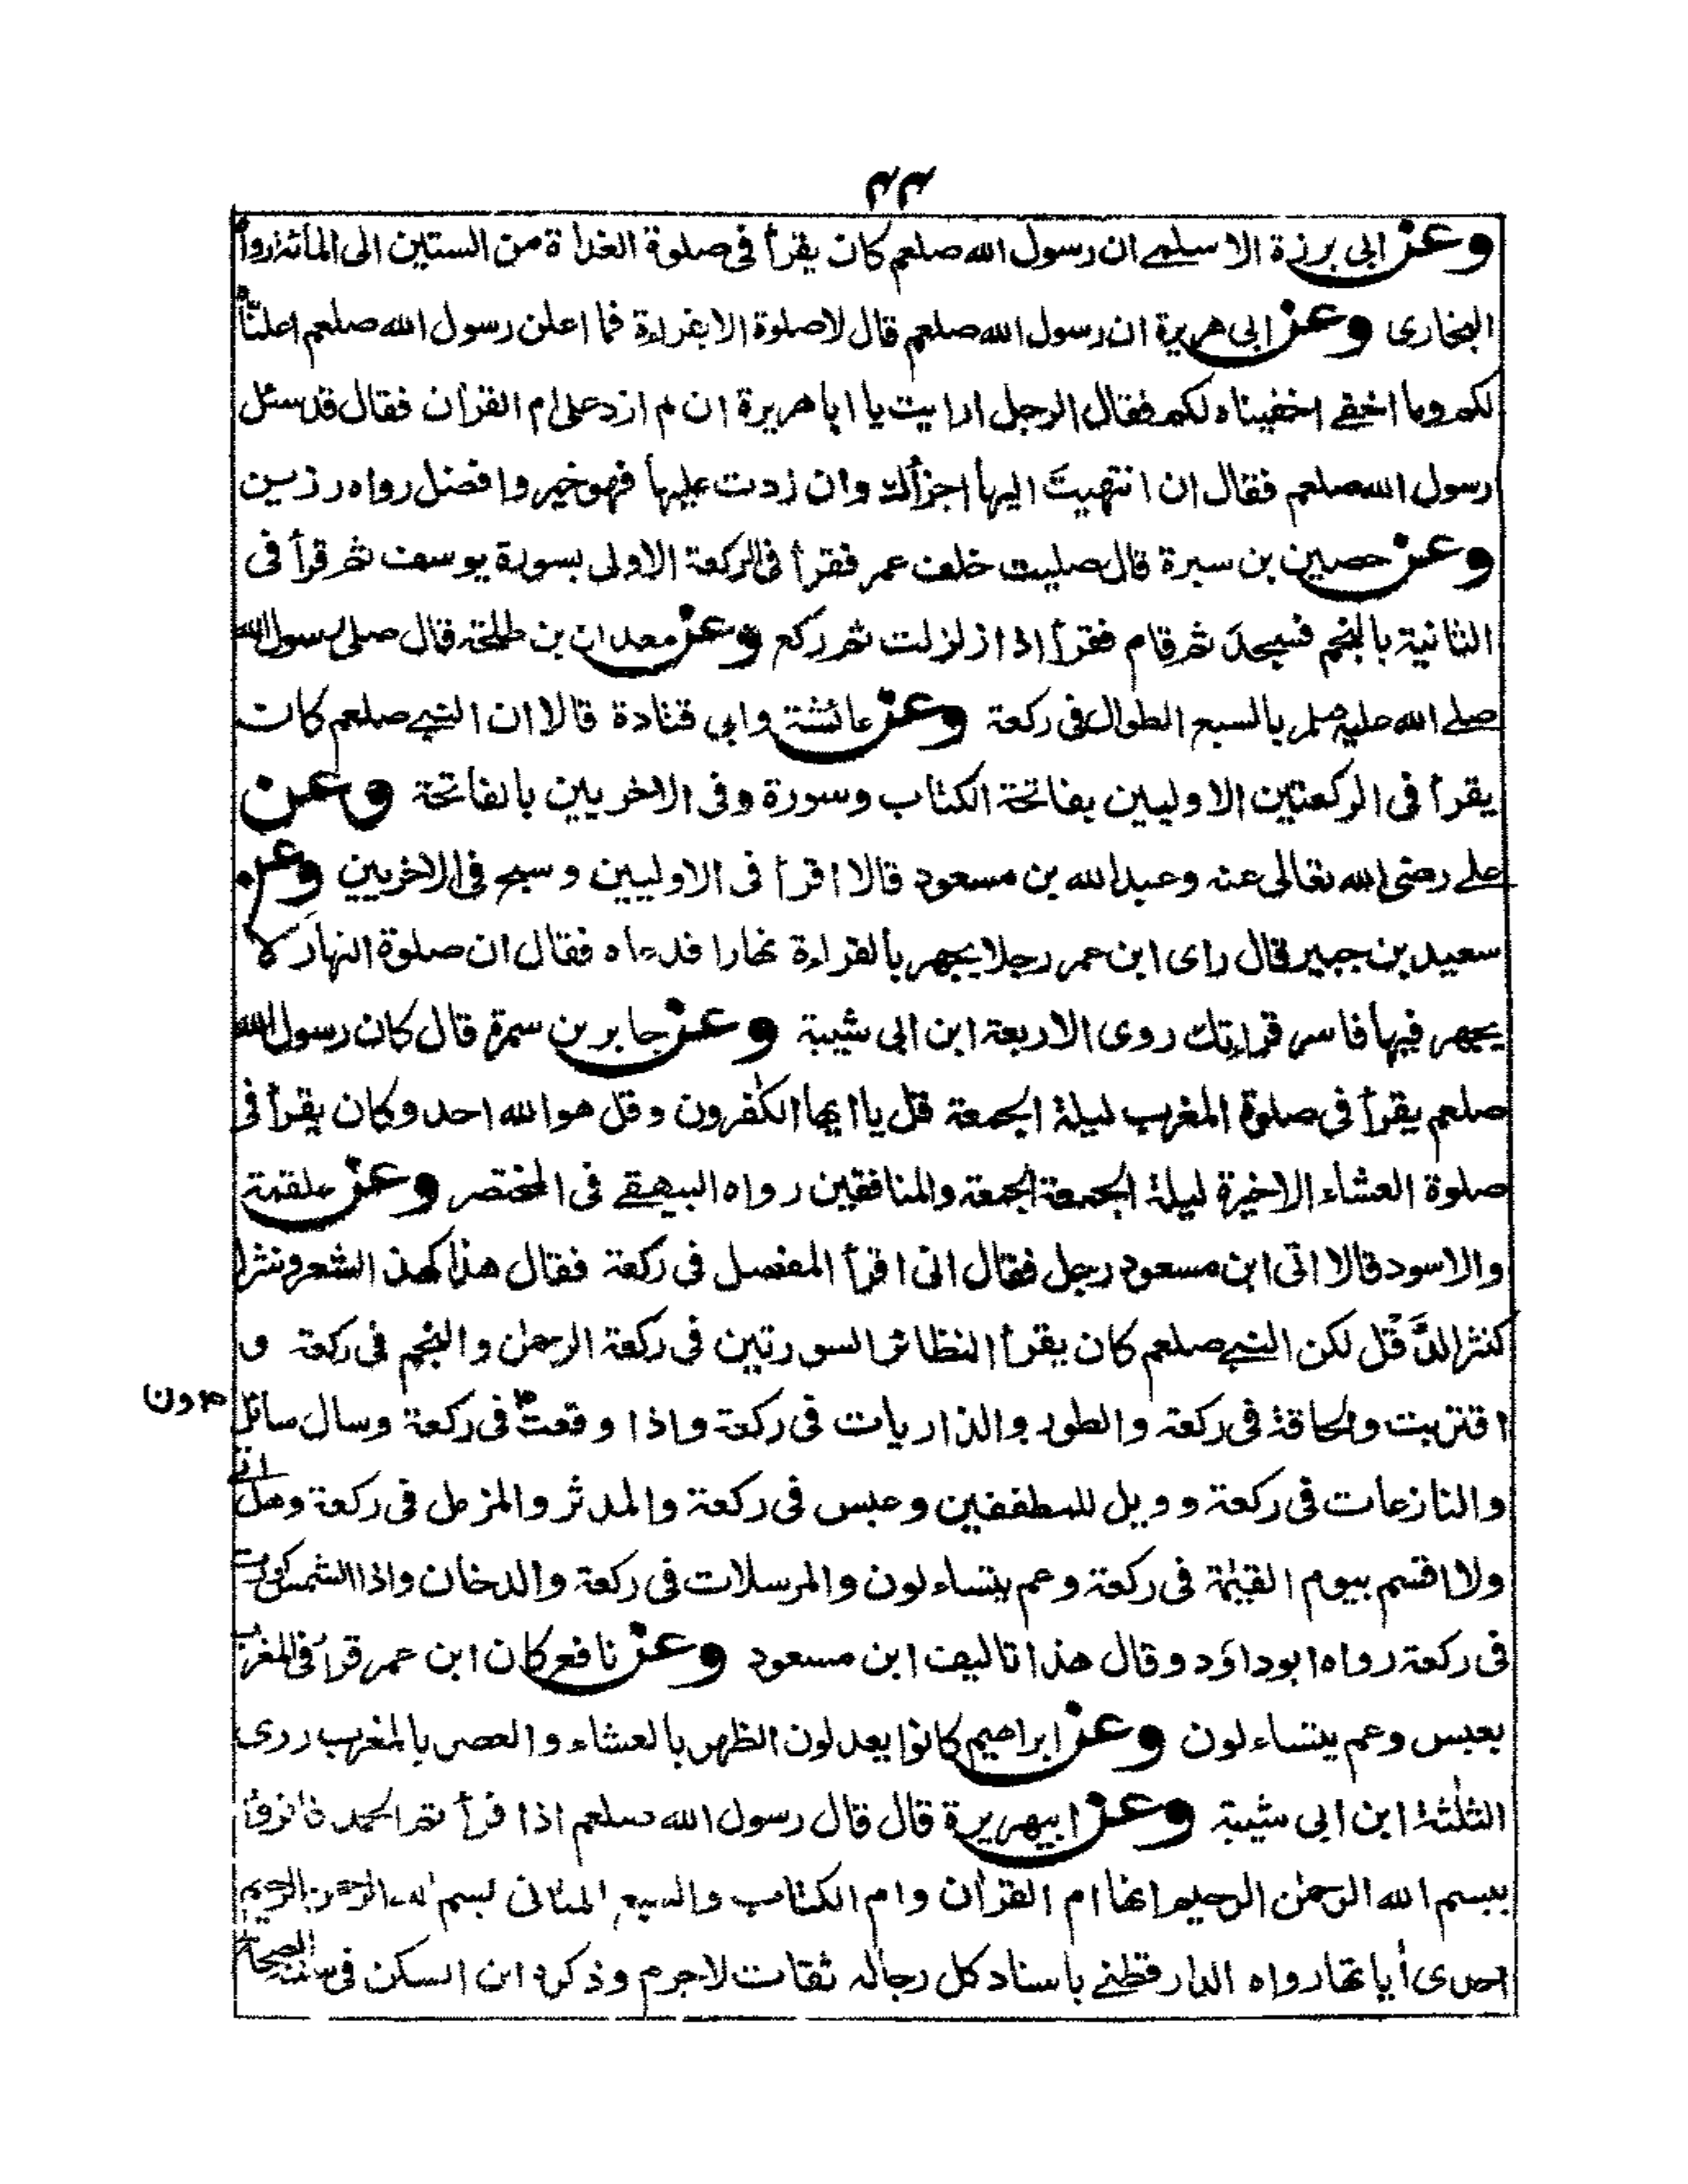 ٤٤
وعن ابى برزة الاسلمے ان رسول الله صلعم كان يقرأ فى صلوة الغداة من الستين الى المائة رواه
البخارى وعن ابى هريرة ان رسول الله صلعم قال لا صلوة الا بقراءة فما اعلن رسول الله صلعم اعلنّاه
لكم وما اخفے اخفيناه لكم فقال الرجل ارايت يا ابا هريرة ان لم ازد على ام القران فقال قد سئل
رسول الله صلعم فقال ان انتهيتَ اليها اجزأتك وان زدت عليها فهو خير وافضل رواه رزين
وعن حصين بن سبرة قال صليت خلف عمر فقرأ فى الركعة الاولى بسورة يوسف ثم قرأ فى
الثانية بالنجم فسجدَ ثم قام فقرأ اذا زلزلت ثم ركع وعن معدان بن طلحة قال صلى رسول الله
صلے الله عليه وسلم بالسبع الطوال فى ركعة وعن عائشة وابى قتادة قالا ان النبے صلعم كان
يقرأ فى الركعتين الاوليين بفاتحة الكتاب وسورة وفى الاخريين بالفاتحة وعن
علے رضى الله تعالى عنه وعبد الله بن مسعود قالا اقرأ فى الاوليين وسبح فى الاخريين وعن
سعيد بن جبير قال راى ابن عمر رجلا يجهر بالقراءة نهارا فدعاه فقال ان صلوة النهارَ لا
يجهر فيها فاسر قراءتك روى الاربعة ابن ابى شيبة وعن جابر بن سمرة قال كان رسول الله
صلعم يقرأ فى صلوة المغرب ليلة الجمعة قل يا ايها الكٰفرون وقل هو الله احد وكان يقرأ فى
صلوة العشاء الاخيرة ليلة الجمعة الجمعة والمنافقين رواه البيهقے فى المختصر وعن علقمة
والاسود قالا اتى ابن مسعود رجل فقال انى اقرأ المفصل فى ركعة فقال هذا كهذ الشعر ونثرا
كنثر الدَّقْل لكن النبے صلعم كان يقرأ النظائر السورتين فى ركعة الرحمٰن والنجم فى ركعة و
اقتربت والحاقة فى ركعة والطور والذاريات فى ركعة واذا وقعت فى ركعة وسال سائل
ون
والنازعات فى ركعة وويل للمطففين وعبس فى ركعة والمدثر والمزمل فى ركعة وهل اتے
ولا اقسم بيوم القيٰمة فى ركعة وعم يتساءلون والمرسلات فى ركعة والدخان واذا الشمس كورت
فى ركعة رواه ابو داؤد وقال هذا تاليف ابن مسعود وعن نافع كان ابن عمر قرأ فى المغرب
بعبس وعم يتساءلون وعن ابراهيم كانوا يعدلون الظهر بالعشاء والعصر بالمغرب روى
الثلثة ابن ابى شيبة وعن ابيهريرة قال قال رسول الله صلعم اذا قرأتم الحمد فاقرؤا
ببسم الله الرحمٰن الرحيم انها ام القران وام الكتاب والسبع المثانى بسم الله الرحمن الرحيم
احدى أياتها رواه الدارقطنے باسناد كل رجاله ثقات لا جرم وذكره ابن السكن فى سننه الصحاح